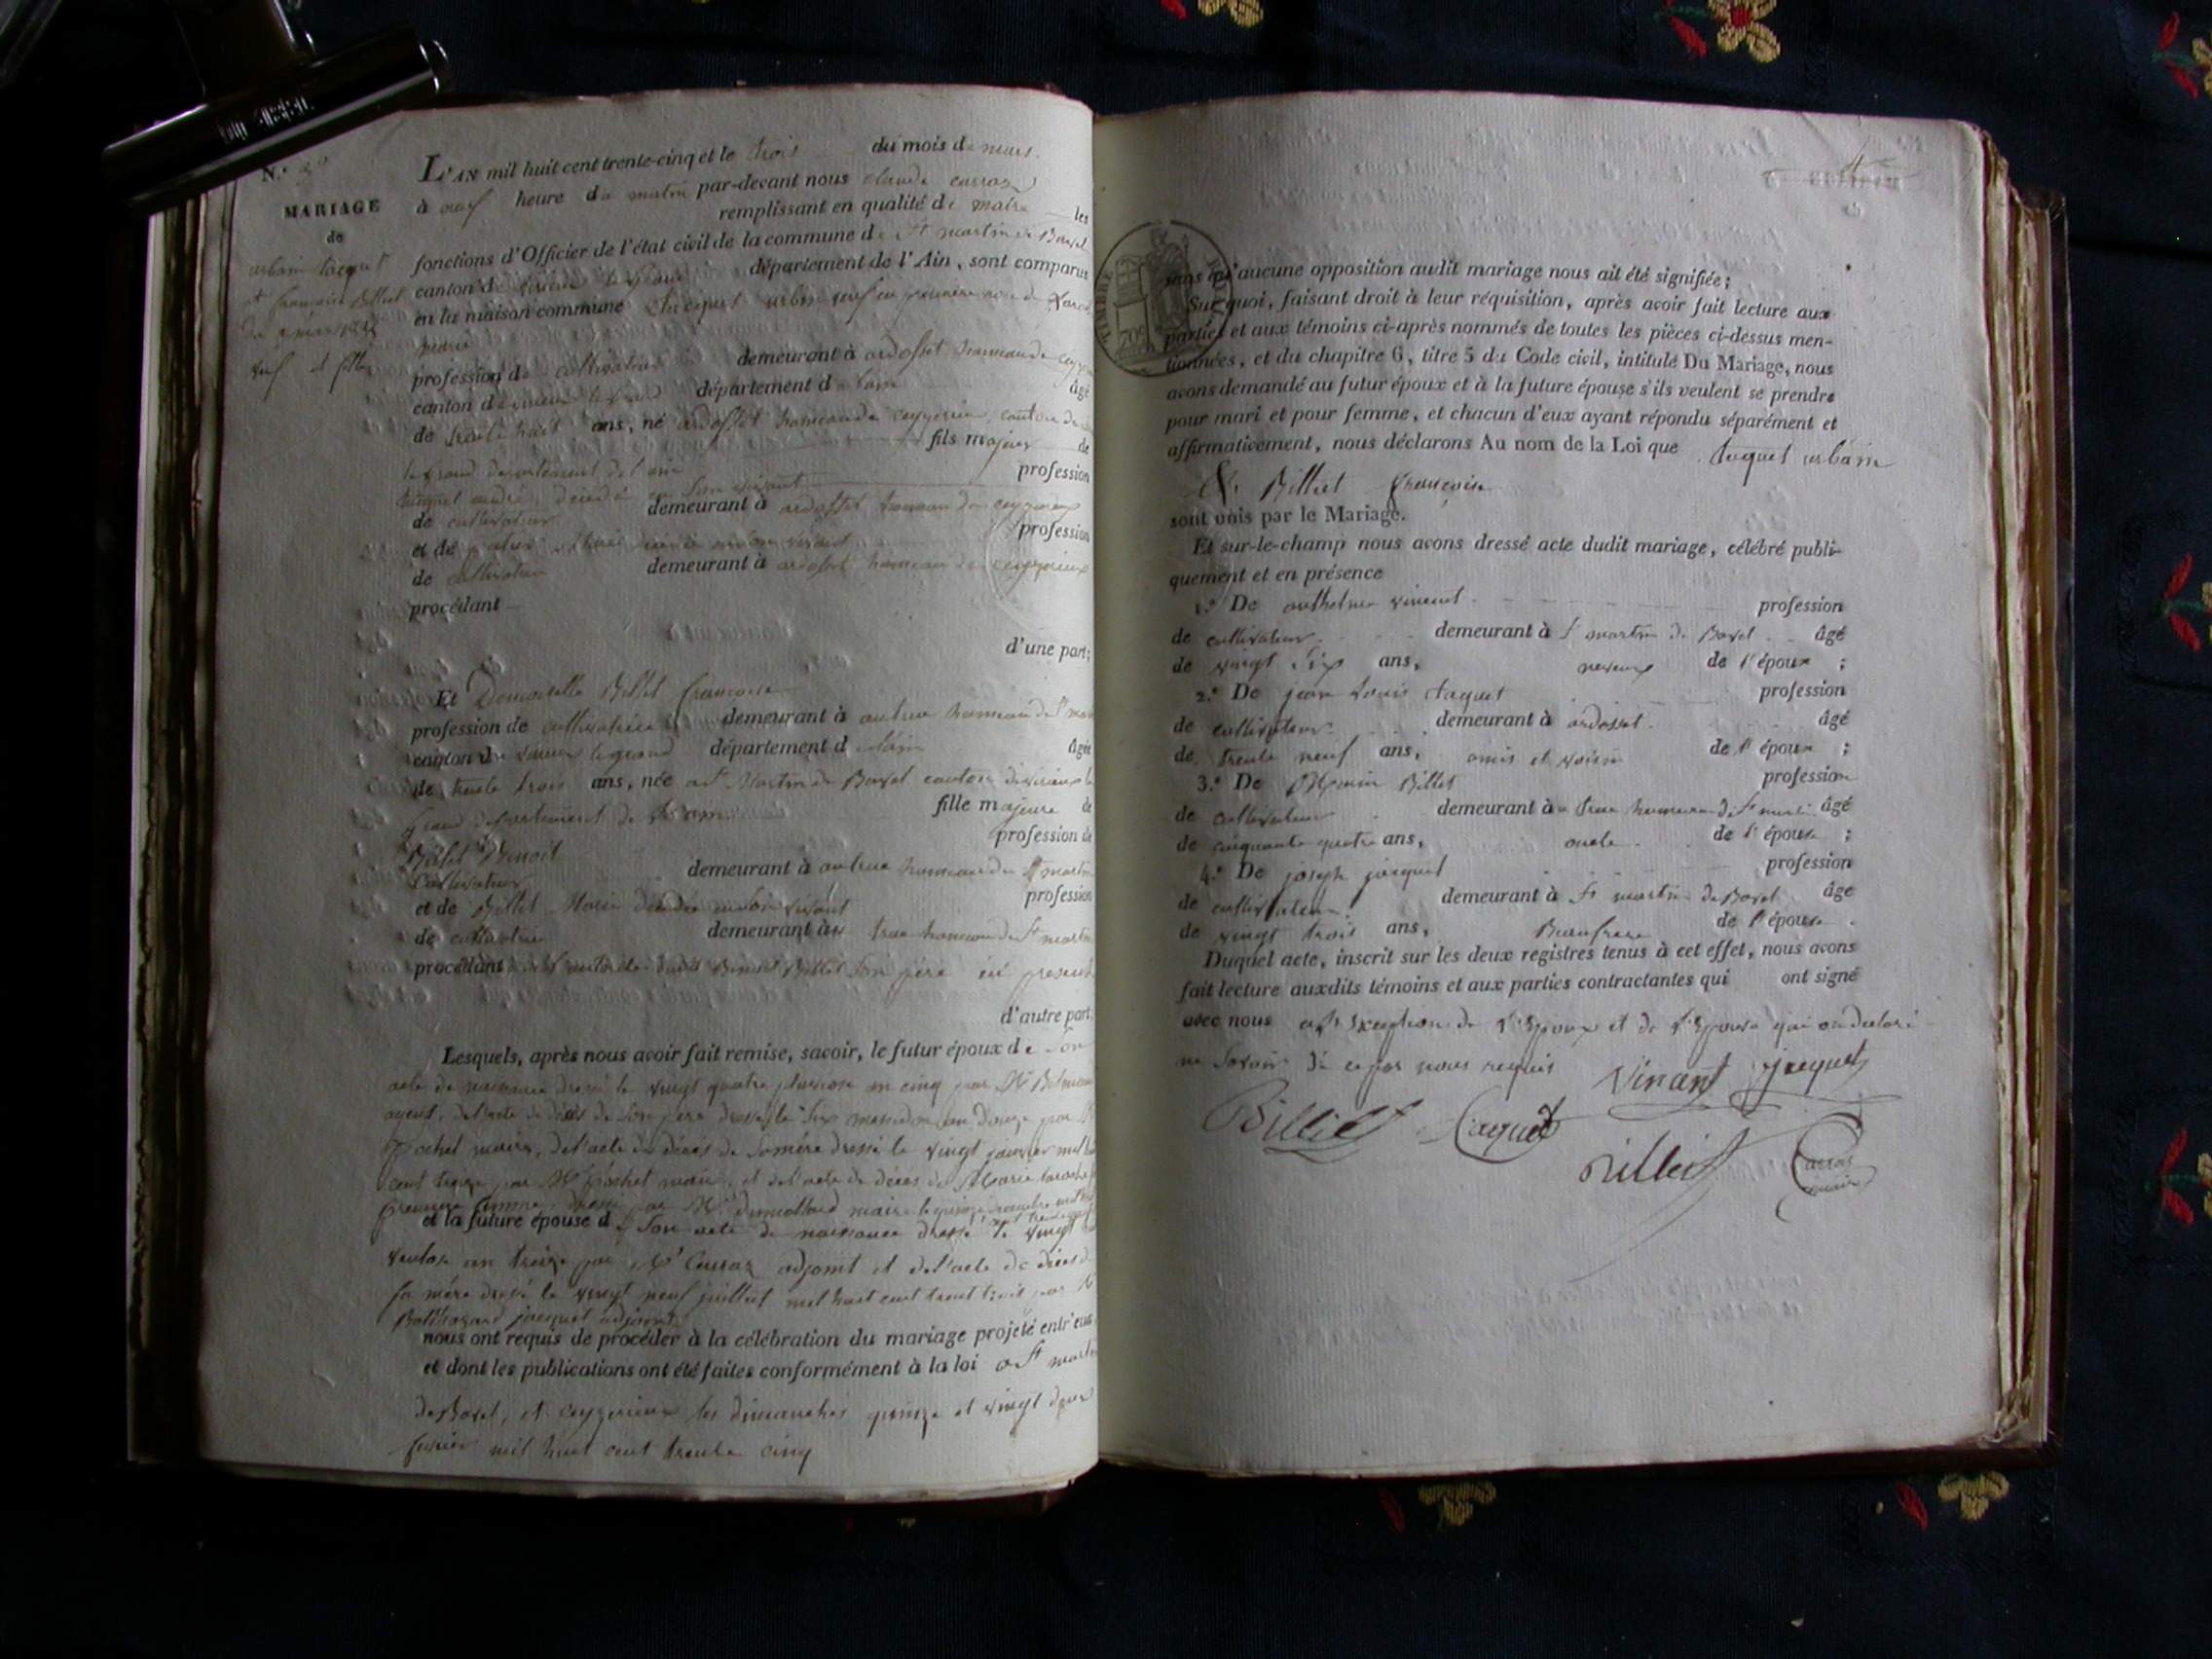 N.° 3
MARIAGE
de
urbain taquet
et françoise Billet
du 3 mars 1835
veuf et fille
L'AN mil huit cent trente-cinq et le trois du mois de mars
à neuf heure du matin par-devant nous claude carraz
remplissant en qualité de maire les
fonctions d'Officier de l'état civil de la commune de St martin de Bavel
canton de virieu le grand département de l'Ain, sont comparus
en la maison commune taquet urbin veuf en première noce de
marie
profession de cultivateur demeurant à ardosset hameau de
canton de virieu le grand département de l'ain âgé
de trente huit ans, né ardosset hameau de ceyzerieu, canton de
le grand departement de l'ain fils majeur de
taquet andré, décédé en son vivant profession
de cultivateur demeurant à ardosset hameau de ceyzerieux
et de marie décédée en son vivant profession
de cultivateur demeurant à ardosset hameau de ceyzerieux
procédant
d'une part;
Et Demoiselle Billet françoise
profession de cultivatrice demeurant à hameau de St mar
canton de virieu le grand département de l'ain âgée
de trente trois ans, née a St Martin de Bavel canton de virieux le
grand departement de l'ain fille majeure de
Billet Benoit profession de
Cultivateur demeurant à hameau de St martin
et de Billet Marie décédée en son vivant profession
de cultivatrice demeurant à hameau de St martin
procédant de l'autorité dudit Benoit Billet son père ici present
d'autre part;
Lesquels, après nous avoir fait remise, savoir, le futur époux de son
acte de naissance dressé le vingt quatre pluviose an cinq par Mr
agent, de l'acte de décès de son père dressé le six messidor an douze par Mr
Pochet maire, de l'acte de décès de sa mère dressé le vingt janvier mil huit
cent treize par Mr Pochet maire, et de l'acte de décès de Marie
premiere femme, dressé par Mr maire le
et la future épouse de son acte de naissance dressé le vingt
ventose an treize par Mr Carraz adjoint et de l'acte de décès de
sa mère dressé le vingt neuf juillet mil huit cent trent trois par Mr
Balthazard jacquet adjoint
nous ont requis de procéder à la célébration du mariage projeté entr'eux
et dont les publications ont été faites conformément à la loi a St martin
de Bavel, et ceyzerieux les dimanches quinze et vingt deux
fevrier mil huit cent trente cinq
4
sans qu'aucune opposition audit mariage nous ait été signifiée;
Sur quoi, faisant droit à leur réquisition, après avoir fait lecture aux
parties et aux témoins ci-après nommés de toutes les pièces ci-dessus men-
tionnées, et du chapitre 6, titre 5 du Code civil, intitulé Du Mariage, nous
avons demandé au futur époux et à la future épouse s'ils veulent se prendre
pour mari et pour femme, et chacun d'eux ayant répondu séparément et
affirmativement, nous déclarons Au nom de la Loi que taquet urbain
&. Billiet françoise
sont unis par le Mariage.
Et sur-le-champ nous avons dressé acte dudit mariage, célébré publi-
quement et en présence
1.° De anthelme vincent profession
de cultivateur demeurant à St martin de Bavel âgé
de vingt six ans, neveux de l'époux ;
2.° De jean Louis taquet profession
de cultivateur demeurant à ardosset âgé
de trente neuf ans, amis et voisin de l'époux ;
3.° De Billet profession
de cultivateur demeurant à hameau de St martin âgé
de cinquante quatre ans, oncle de l'épouse ;
4.° De joseph jacquet profession
de cultivateur demeurant à St martin de Bavel âgé
de vingt trois ans, Beaufrere de l'épouse
Duquel acte, inscrit sur les deux registres tenus à cet effet, nous avons
fait lecture auxdits témoins et aux parties contractantes qui ont signé
avec nous a l'exception de l'Epoux et de l'Epouse qui on déclaré
ne savoir de ce par nous requis Vincent jacquet
Billiet Taquet
Billiet Carraz
maire
TIMBRE ROYAL
70c